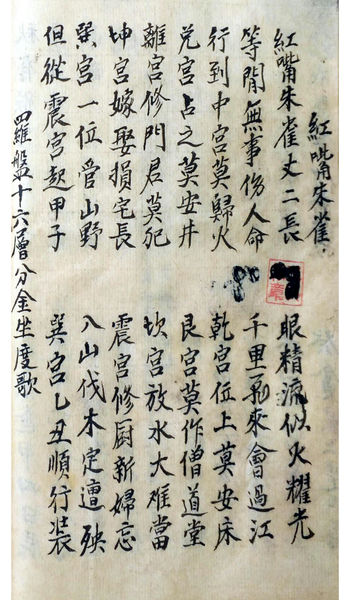 紅嘴朱雀.
紅嘴朱雀丈二長 眼精流似火耀光
等閒無事傷人命 千里飛來會過江
行到中宮莫歸火 乾宮位上莫安床
兌宮占之莫安井 艮宮莫作僧道堂
離宮修門君莫犯 坎宮放水大難當
坤宮嫁娶損宅長 震宮修厨新婦忘
巽宮一位管山野 入山伐木定遭殃
但從震宮起甲子 巽宮乙丑順行裝
羅盤十六層分金坐度歌